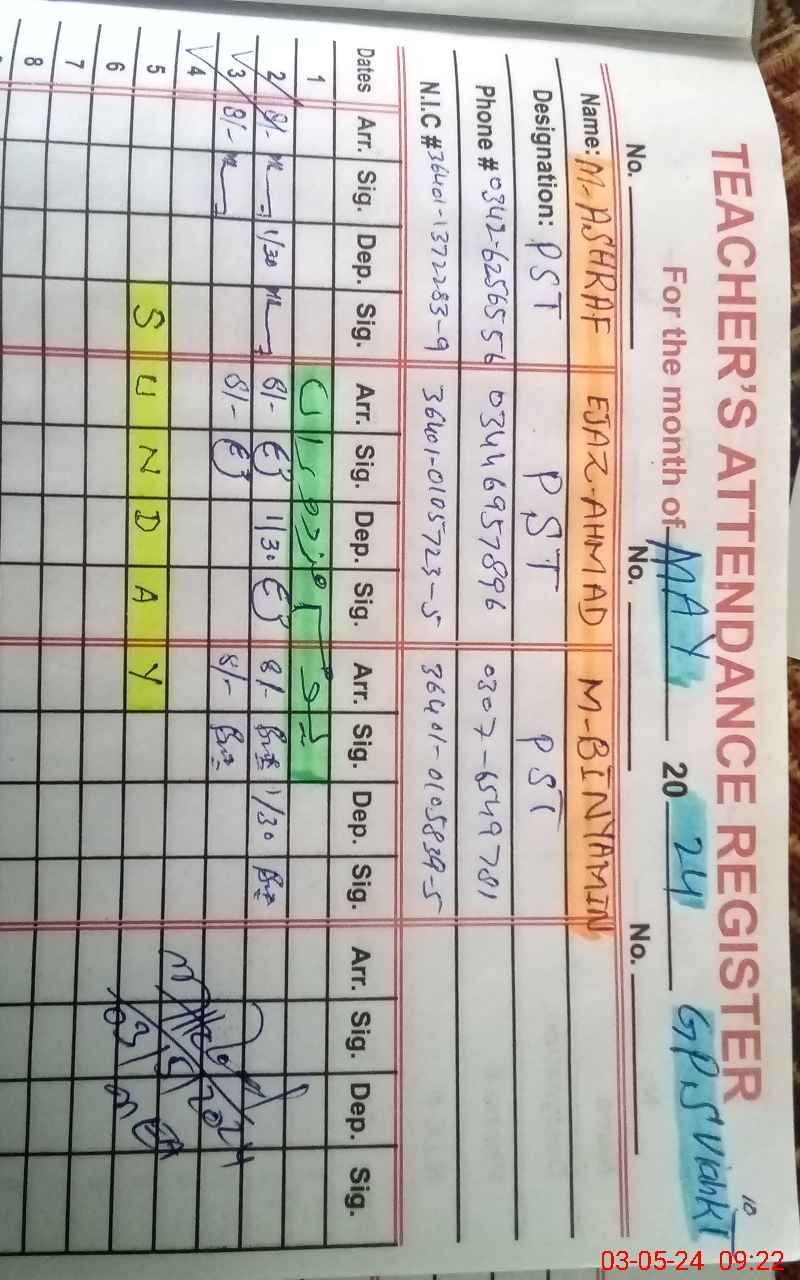 10
TEACHER'S ATTENDANCE REGISTER
For the month of MAY 20 24 GPS
No. No. No.
Name: M-ASHRAF EJAZ-AHMAD M-BINYAMIN
Designation: PST PST PST
Phone # 0342-6256556 03446957896 0307-6549781
N.I.C # 36401-1372283-9 36401-0105723-5 36401-0105839-5
Dates Arr. Sig. Dep. Sig. Arr. Sig. Dep. Sig. Arr. Sig. Dep. Sig. Arr. Sig. Dep. Sig.
1
2 8/- 1/30 8/- 1/30 8/- 1/30
3 8/- 8/- 8/-
4
5 SUNDAY
6
7
8
03/5/2024
MEA
03-05-24 09:22